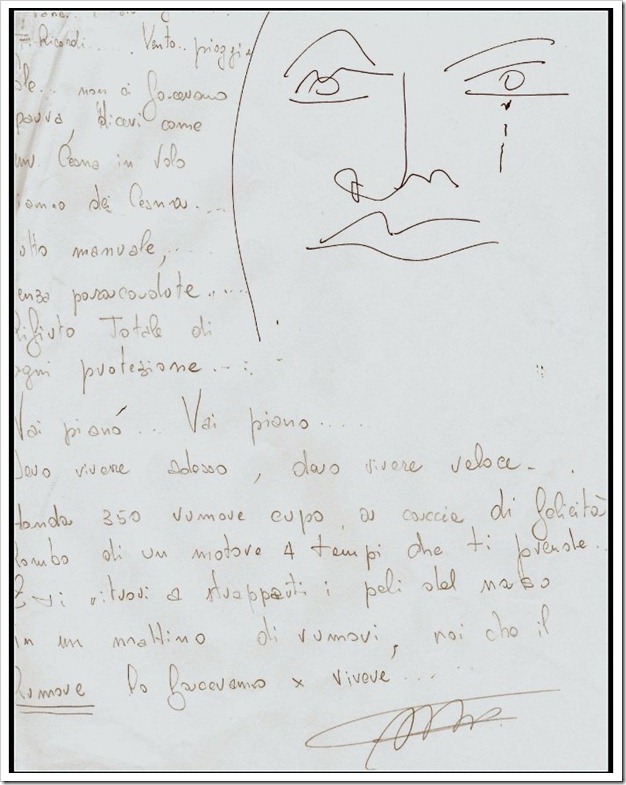 Ricordi..... Vento.. pioggia
non ci facevano
paura, dicevi come
un Cesna in volo
dei Cesna....
manuale,....
paracadute......
Rifiuto Totale di
ogni protezione......
Vai piano... Vai piano.....
Devo vivere adesso, devo vivere veloce.
350 rumore cupo, a caccia di felicità
Rombo di un motore 4 tempi che ti prende..
ritrovi a strapparti i peli del naso
in un mattino di rumori, noi che il
Rumore lo facevamo x vivere.....